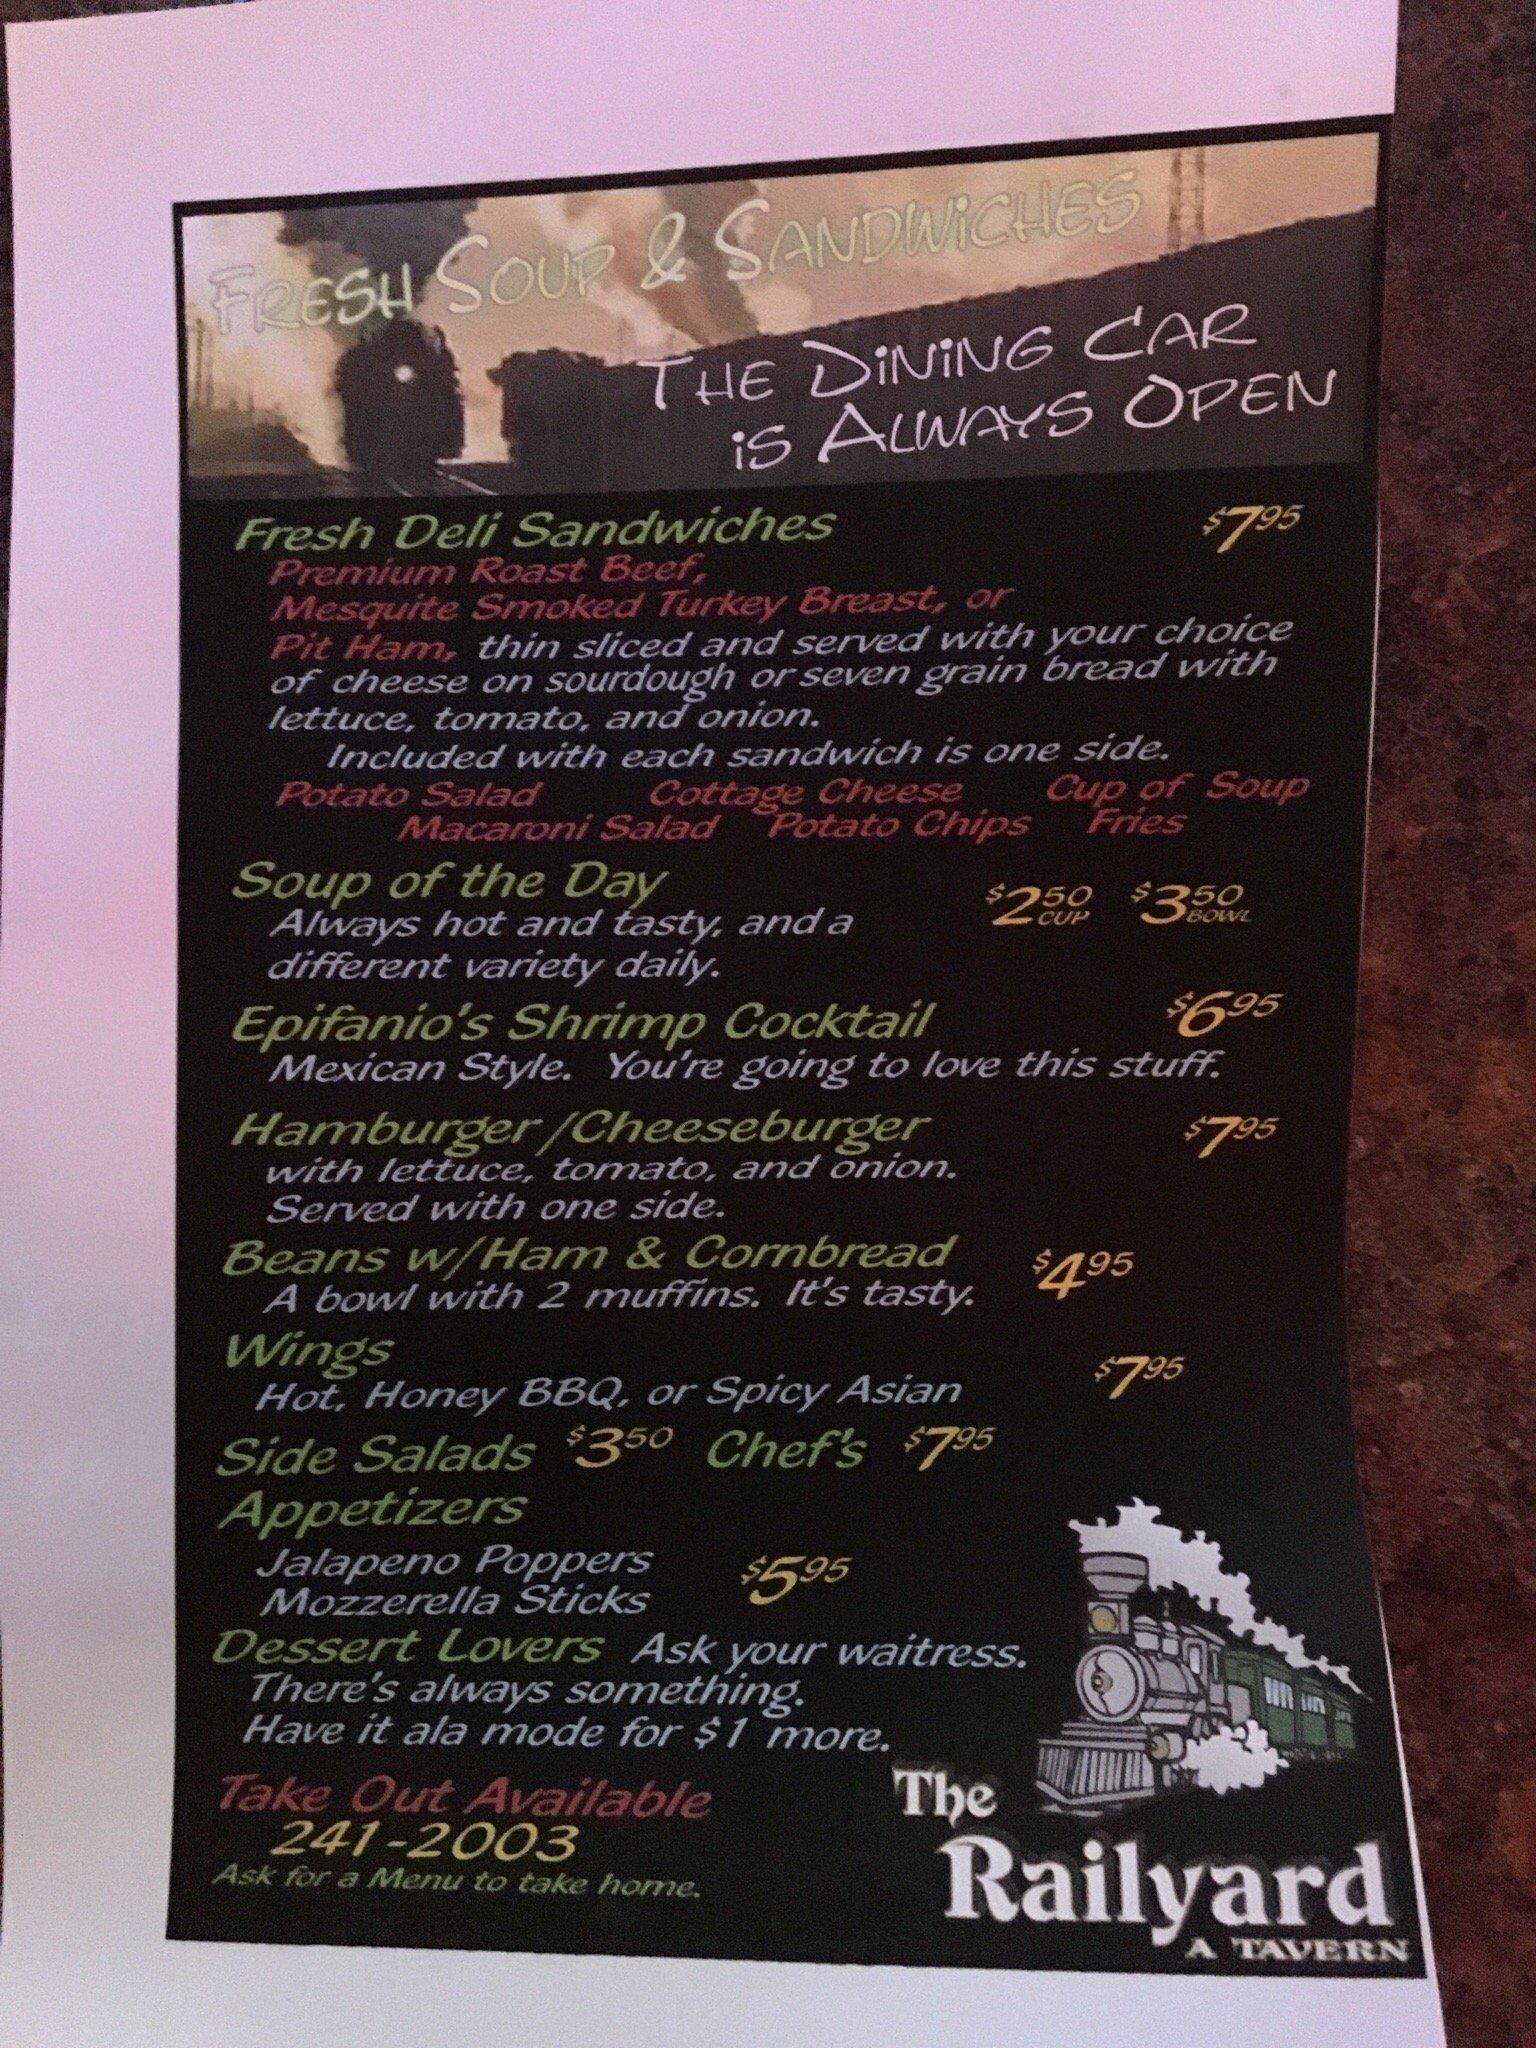 FRESH SOUP & SANDWiCHES
THE DiNiNG CAR
iS ALWAYS OPEN
Fresh Deli Sandwiches $7.95
Premium Roast Beef,
Mesquite Smoked Turkey Breast, or
Pit Ham, thin sliced and served with your choice
of cheese on sourdough or seven grain bread with
lettuce, tomato, and onion.
Included with each sandwich is one side.
Potato Salad Cottage Cheese Cup of Soup
Macaroni Salad Potato Chips Fries
Soup of the Day $2.50 CUP $3.50 BOWL
Always hot and tasty, and a
different variety daily.
Epifanio's Shrimp Cocktail $6.95
Mexican Style. You're going to love this stuff.
Hamburger/Cheeseburger $7.95
with lettuce, tomato, and onion.
Served with one side.
Beans w/Ham & Cornbread $4.95
A bowl with 2 muffins. It's tasty.
Wings $7.95
Hot, Honey BBQ, or Spicy Asian
Side Salads $3.50 Chef's $7.95
Appetizers
Jalapeno Poppers $5.95
Mozzerella Sticks
Dessert Lovers Ask your waitress.
There's always something.
Have it ala mode for $1 more.
Take Out Available
241-2003
Ask for a Menu to take home.
The
Railyard
A TAVERN